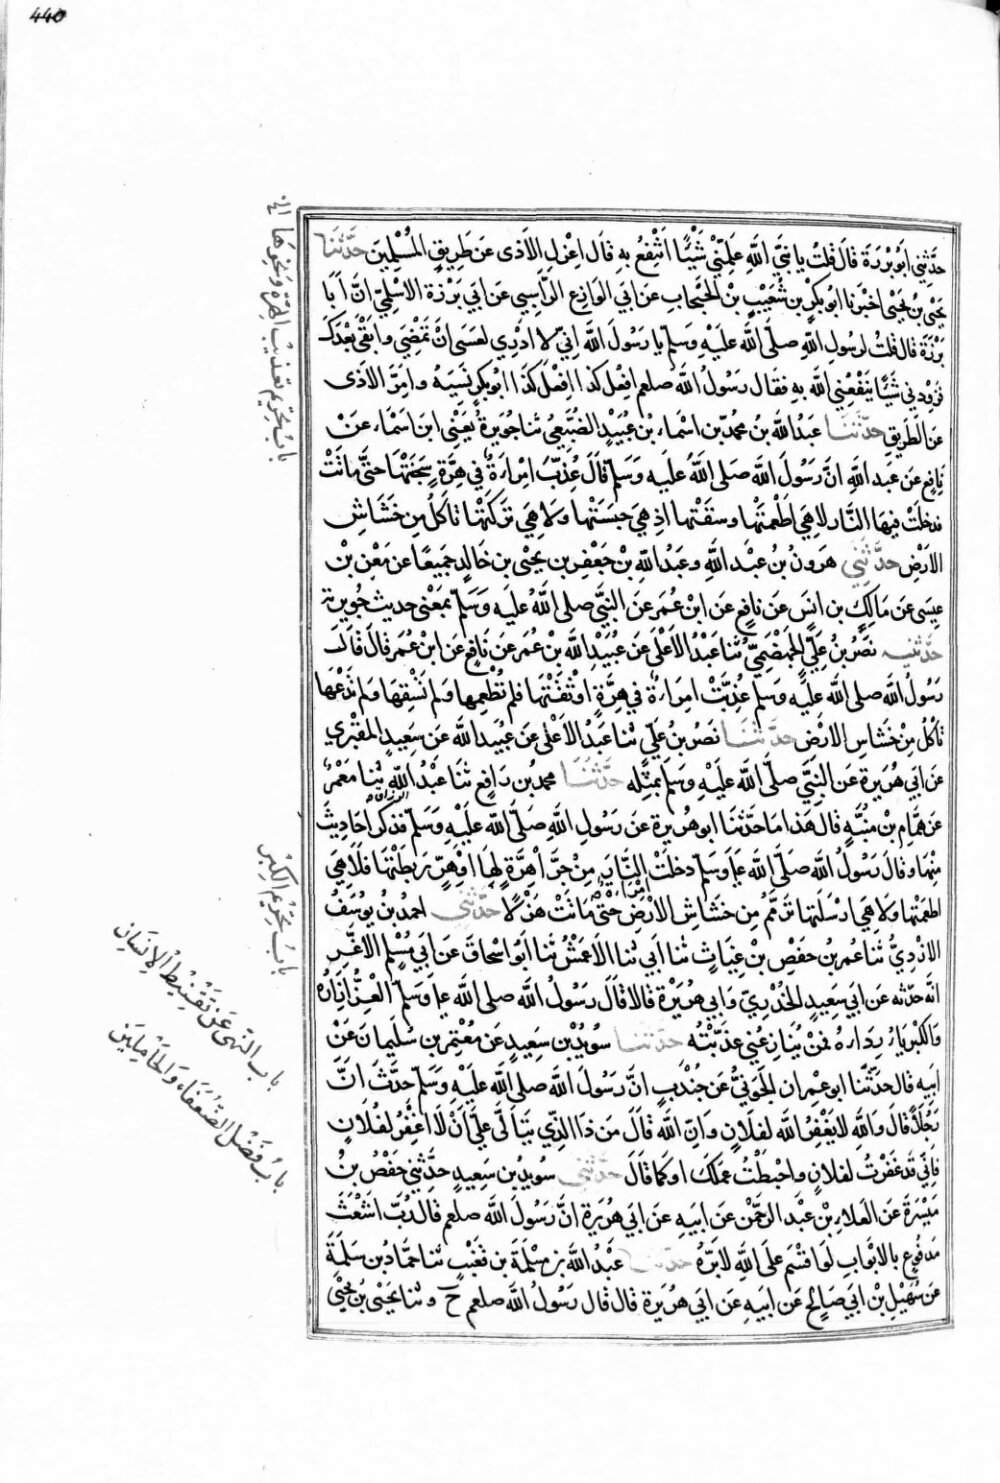 440
حدثني ابو برزة قال قلت يا نبي الله علمني شيئا انتفع به قال اعزل الاذى عن طريق المسلمين حدثنا
يحيى بن يحيى اخبرنا ابو بكر بن شعيب بن الحبحاب عن ابي الوازع الراسبي عن ابي برزة الاسلمي ان ابا
برزة قال قلت لرسول الله صلى الله عليه وسلم يا رسول الله اني لا ادري لعسى ان تمضي وابقى بعدك
فزودني شيئا ينفعني الله به فقال رسول الله صلعم افعل كذا افعل كذا ابو بكر نسيه وامر الاذى
عن الطريق حدثنا عبد الله بن محمد بن اسماء بن عبيد الضبعي ثنا جويرة يعني ابن اسماء عن
نافع عن عبد الله ان رسول الله صلى الله عليه وسلم قال عذبت امراة في هرة سجنتها حتى ماتت
فدخلت فيها النار لا هي اطعمتها وسقتها اذ هي حبستها ولا هي تركتها تاكل من خشاش
الارض حدثني هرون بن عبد الله وعبد الله بن جعفر بن يحيى بن خالد جميعا عن معن بن
عيسى عن مالك بن انس عن نافع عن ابن عمر عن النبي صلى الله عليه وسلم بمعنى حديث جويرة
حدثنيه نصر بن علي الجهضمي ثنا عبد الاعلى عن عبيد الله بن عمر عن نافع عن ابن عمر قال قال
رسول الله صلى الله عليه وسلم عذبت امراة في هرة اوثقتها فلم تطعمها ولم تسقها ولم تدعها
تاكل من خشاش الارض حدثنا نصر بن علي ثنا عبد الاعلى عن عبيد الله عن سعيد المقبري
عن ابي هريرة عن النبي صلى الله عليه وسلم بمثله حدثنا محمد بن رافع ثنا عبد الرزاق ثنا معمر
عن همام بن منبه قال هذا ما حدثنا ابو هريرة عن رسول الله صلى الله عليه وسلم فذكر احاديث
منها وقال رسول الله صلى الله ع وسلم دخلت امراة النار من جرا هرة لها او هر ربطتها فلا هي
اطعمتها ولا هي ارسلتها ترمم من خشاش الارض حتى ماتت هزلا حدثني احمد بن يوسف
الازدي ثنا عمر بن حفص بن غياث ثنا ابي ثنا الاعمش ثنا ابو اسحاق عن ابي مسلم الاغر
انه حدثه عن ابي سعيد الخدري وابي هريرة قالا قال رسول الله صلى الله ع وسلم العز ازاره
والكبرياء رداره فمن ينازعني عذبته حدثنا سويد بن سعيد عن معتمر بن سليمان عن
ابيه قال حدثنا ابو عمران الجوني عن جندب ان رسول الله صلى الله عليه وسلم حدث ان
رجلا قال والله لا يغفر الله لفلان وان الله قال من ذا الذي يتالى علي ان لا اغفر لفلان
فاني قد غفرت لفلان واحبطت عملك او كما قال حدثني سويد بن سعيد حدثني حفص بن
ميسرة عن العلاء بن عبد الرحمن عن ابيه عن ابي هريرة ان رسول الله صلعم قال رب اشعث
مدفوع بالابواب لو اقسم على الله لابره حدثنا عبد الله بن مسلمة بن قعنب ثنا حماد بن سلمة
عن سهيل بن ابي صالح عن ابيه عن ابي هريرة قال قال رسول الله صلعم ح وثنا يحيى بن يحيى
باب تحريم تعذيب الهرة ونحوها الخ
باب تحريم الكبر
باب النهى عن تقنيط الانسان
باب فضل الضعفاء والخاملين